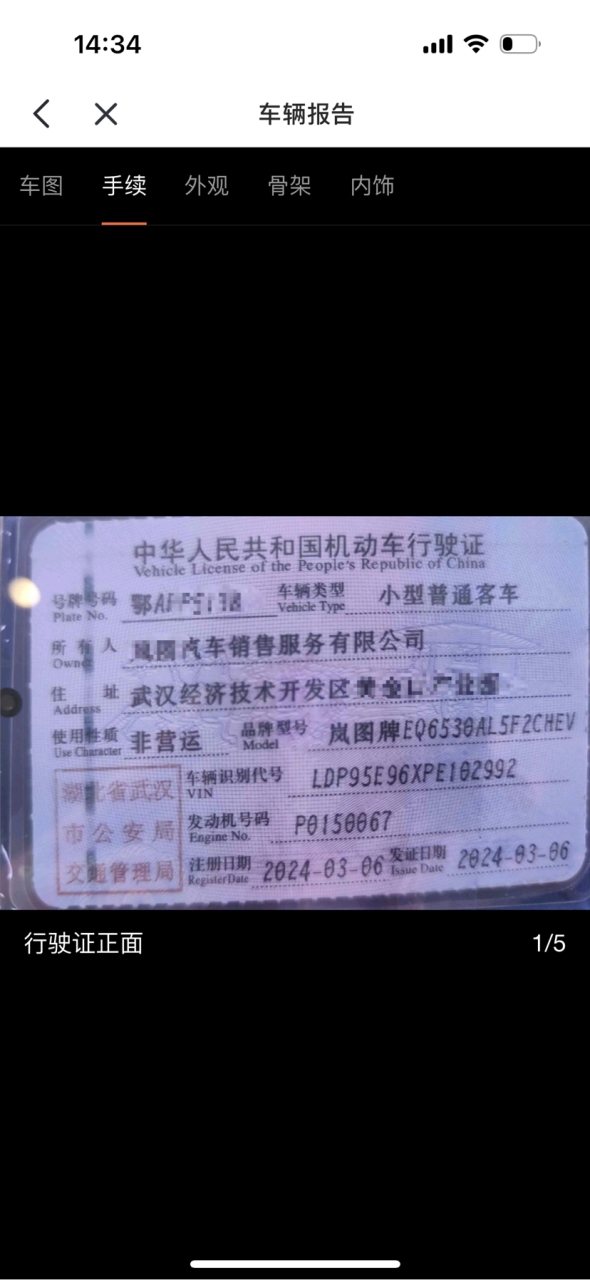 14:34
车辆报告
车图 手续 外观 骨架 内饰
中华人民共和国机动车行驶证
Vehicle License of the People's Republic of China
号牌号码 鄂A 车辆类型 小型普通客车
Plate No. Vehicle Type
所有人 汽车销售服务有限公司
Owner
住址 武汉经济技术开发区
Address
使用性质 非营运 品牌型号 岚图牌EQ6530AL5F2CHEV
Use Character Model
湖北省武汉 车辆识别代号 LDP95E96XPE102992
VIN
市公安局 发动机号码 P0150067
Engine No.
交通管理局 注册日期 2024-03-06 发证日期 2024-03-06
Register Date Issue Date
行驶证正面 1/5